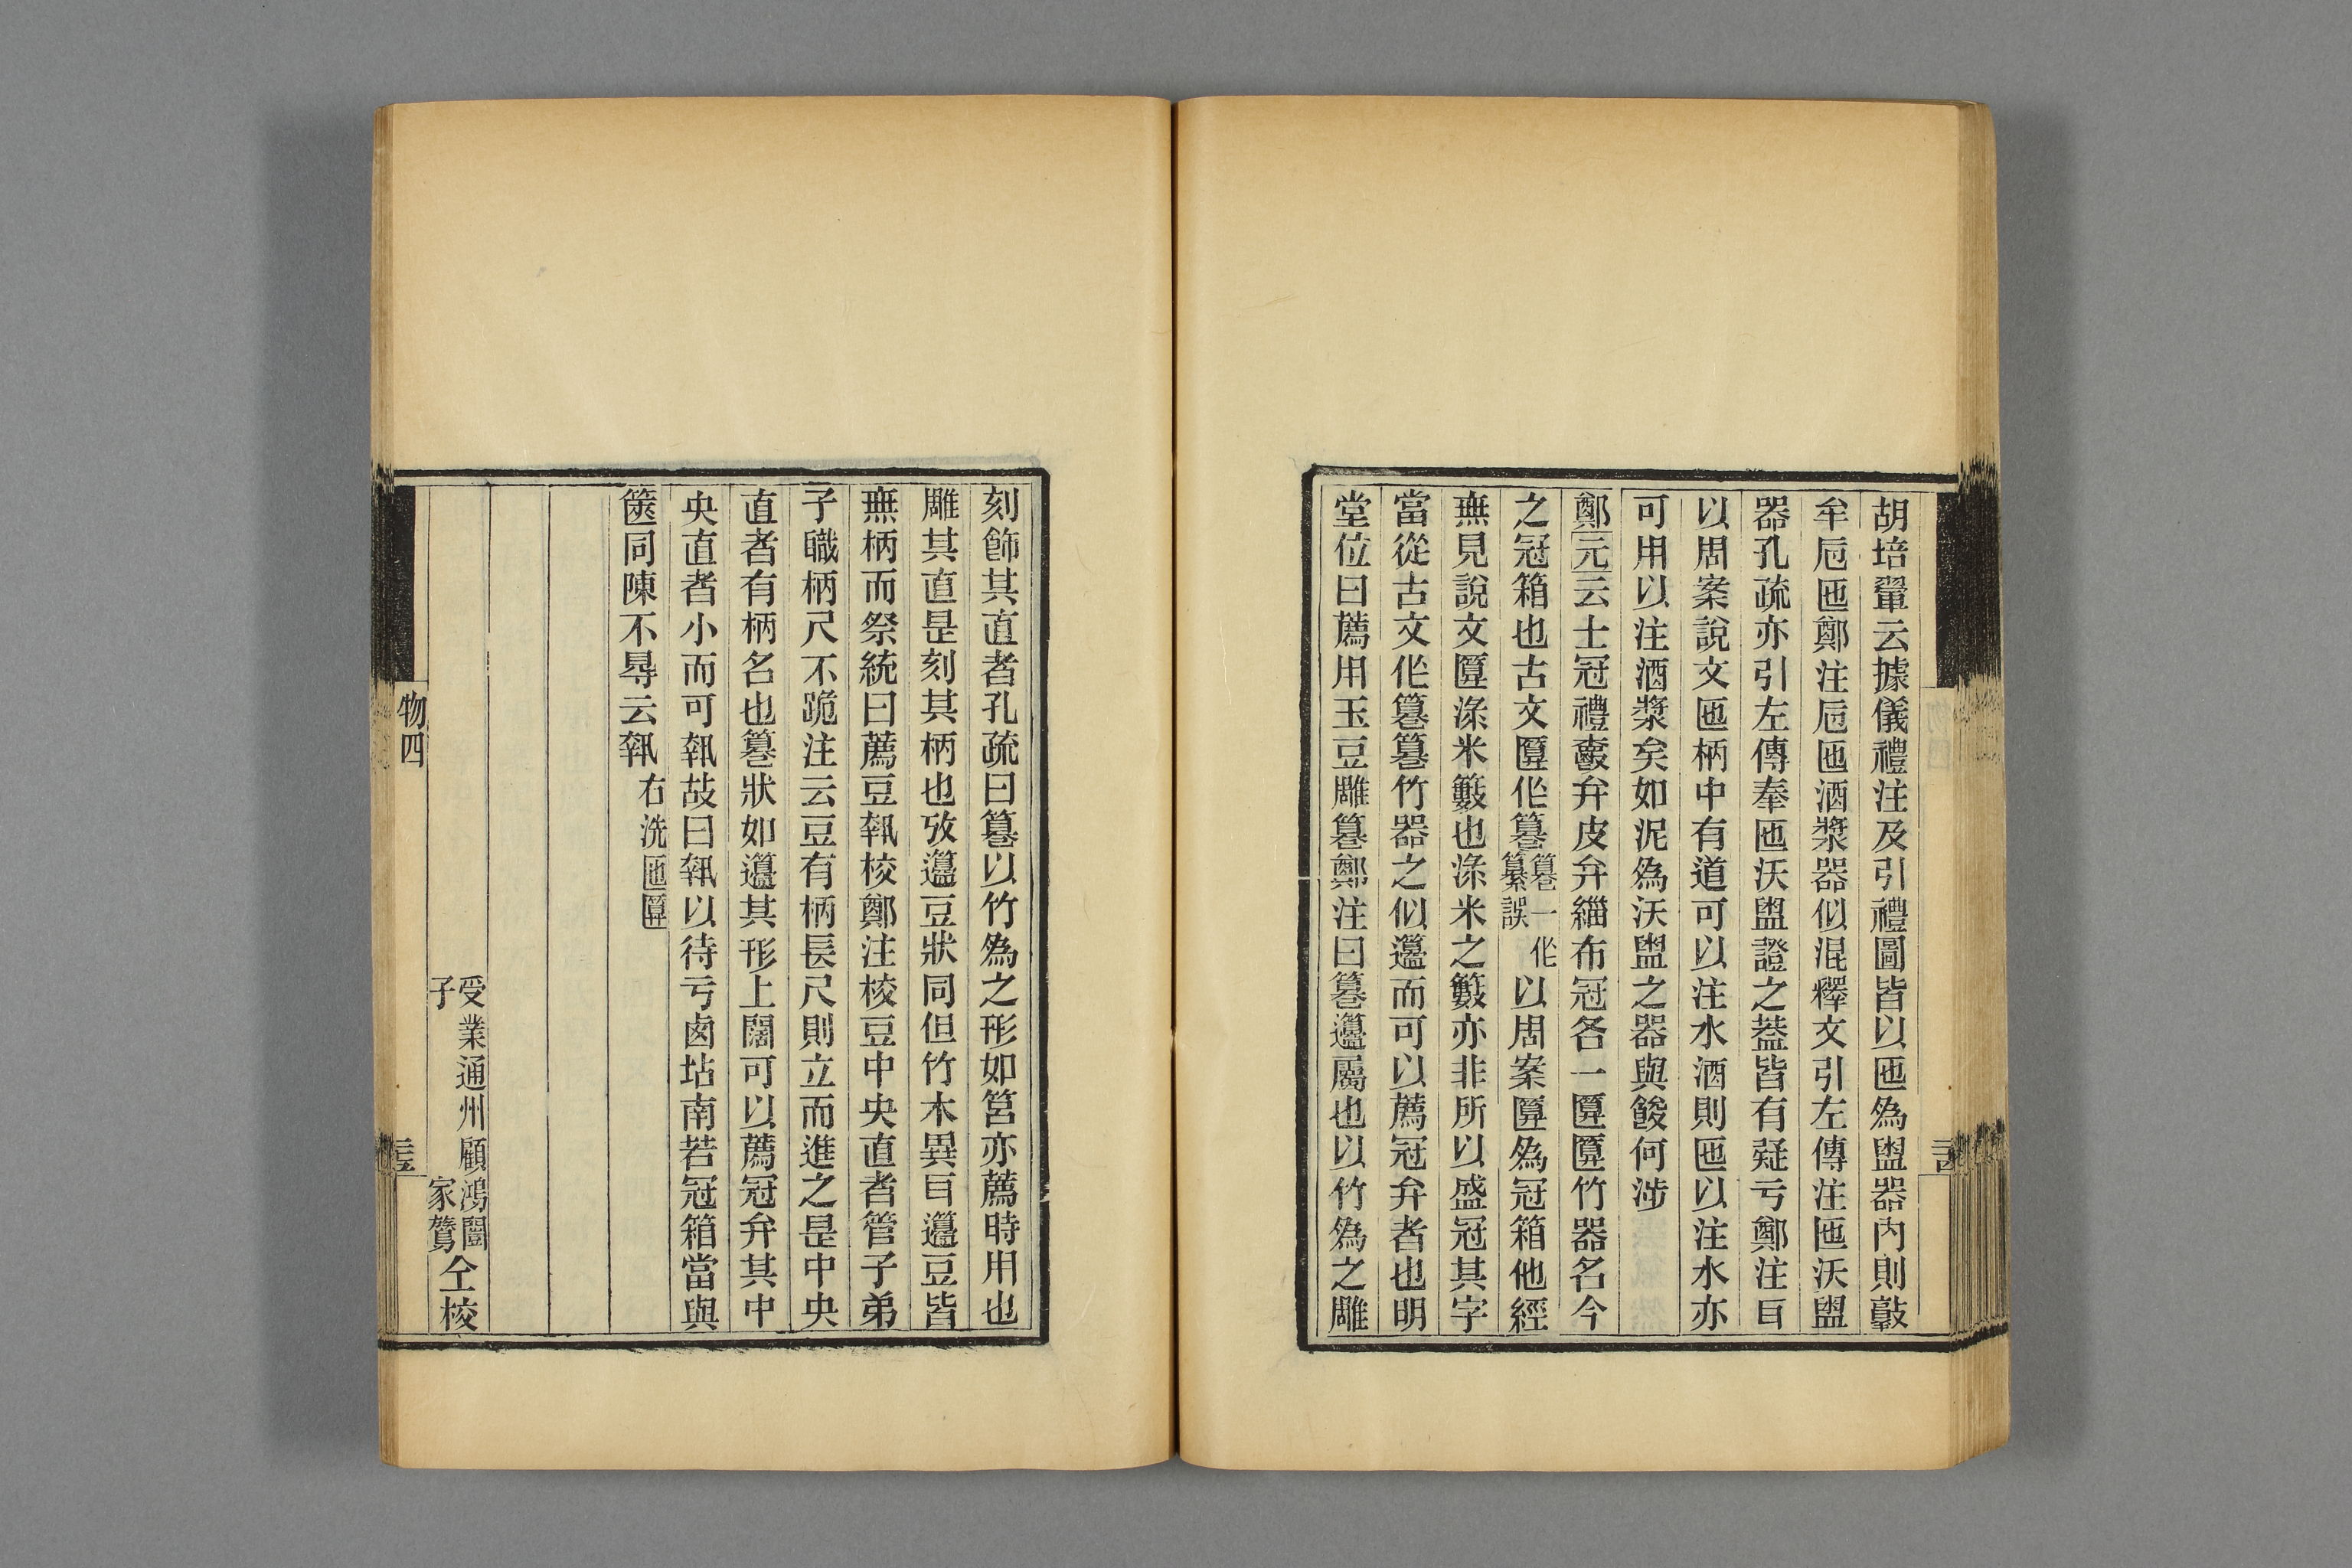 胡培翬云據儀禮注及引禮圖皆以匜爲盥器內則敦
牟卮匜鄭注卮匜酒漿器似混釋文引左傳注匜沃盥
器孔疏亦引左傳奉匜沃盥證之葢皆有疑亏鄭注㠯
以周案說文匜柄中有道可以注水酒則匜以注水亦
可用以注酒漿矣如泥爲沃盥之器與餕何涉
鄭元云士冠禮爵弁皮弁緇布冠各一匴匴竹器名今
之冠箱也古文匴作篹篹一作纂誤以周案匴爲冠箱他經
無見說文匴淥米籔也淥米之籔亦非所以盛冠其字
當從古文作篹篹竹器之似籩而可以薦冠弁者也明
堂位曰薦用玉豆雕篹鄭注曰篹籩屬也以竹爲之雕
刻飾其直者孔疏曰篹以竹爲之形如筥亦薦時用也
雕其直是刻其柄也攷籩豆狀同但竹木異㠯籩豆皆
無柄而祭統曰薦豆執校鄭注校豆中央直者管子弟
子職柄尺不跪注云豆有柄長尺則立而進之是中央
直者有柄名也篹狀如籩其形上闊可以薦冠弁其中
央直者小而可執故曰執以待亏卤坫南若冠箱當與
篋同陳不㝵云執右洗匜匴
受業通州顧鴻闓
子家鷟仝校
物四